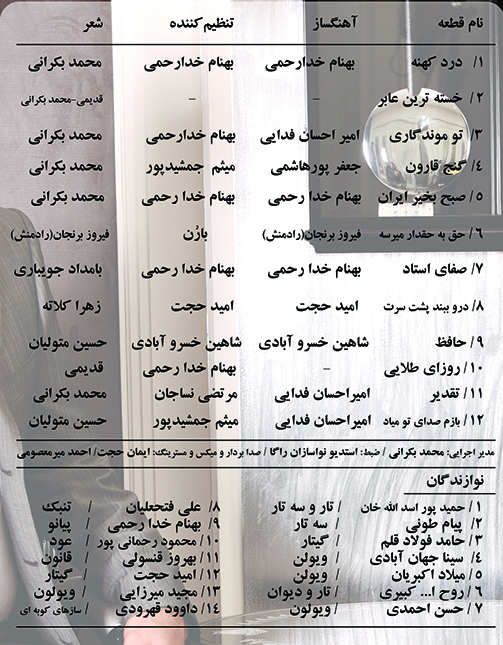 نام قطعه آهنگساز تنظیم کننده شعر
۱/ درد کهنه بهنام خدارحمی بهنام خدارحمی محمد بکرانی
۲/ خسته ترین عابر - - قدیمی-محمد بکرانی
۳/ تو موندگاری امیر احسان فدایی بهنام خدارحمی محمد بکرانی
٤/ گنج قارون جعفر پورهاشمی میثم جمشیدپور محمد بکرانی
٥/ صبح بخیر ایران بهنام خدا رحمی بهنام خدا رحمی محمد بکرانی
۶/ حق به حقدار میرسه فیروز برنجان(رادمنش) باژن فیروز برنجان(رادمنش)
۷/ صفای استاد بهنام خدا رحمی بهنام خدا رحمی بامداد جویباری
۸/ درو ببند پشت سرت امید حجت امید حجت زهرا کلاته
۹/ حافظ شاهین خسرو آبادی شاهین خسرو آبادی حسین متولیان
۱۰/ روزای طلایی - بهنام خدا رحمی قدیمی
۱۱/ تقدیر امیراحسان فدایی مرتضی نساجان محمد بکرانی
۱۲/ بازم صدای تو میاد امیراحسان فدایی میثم جمشیدپور حسین متولیان
مدیر اجرایی: محمد بکرانی / ضبط: استدیو نواسازان راگا / صدا بردار و میکس و مسترینگ: ایمان حجت/ احمد میرمعصومی
نوازندگان
۱/ حمید پور اسد الله خان / تار و سه تار ۸/ علی فتحعلیان / تنبک
۲/ پیام طونی / سه تار ۹/ بهنام خدا رحمی / پیانو
۳/ حامد فولاد قلم / گیتار ۱۰/ محمود رحمانی پور / عود
٤/ سینا جهان آبادی / ویولن ۱۱/ بهروز قنسولی / قانون
٥/ میلاد اکبریان / ویولن ۱۲/ امید حجت / گیتار
۶/ روح ا... کبیری / تار و دیوان ۱۳/ مجید میرزایی / ویولون
۷/ حسن احمدی / ویولون ۱٤/ داوود قهرودی / سازهای کوبه ای